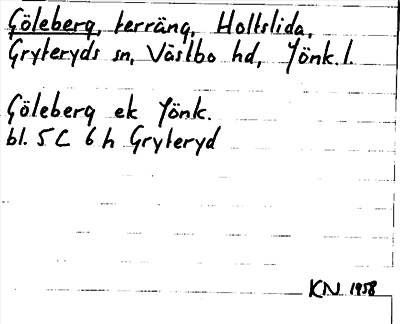 Göleberg, terräng, Holtslida,
Gryteryds sn, Västbo hd, Jönk. l.
Göleberg ek Jönk.
bl. 5 C 6 h Gryteryd
KN 1958